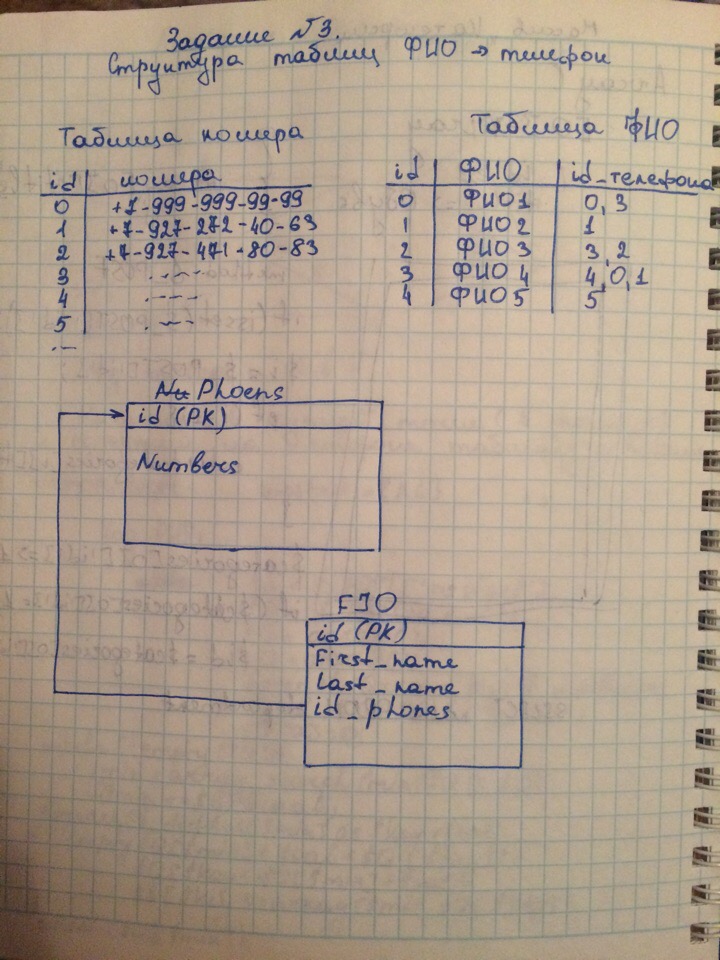 Задание №3.
Структура таблиц ФИО → телефон
Таблица номера
id номера
0 +7-999-999-99-99
1 +7-927-272-40-63
2 +7-927-471-80-83
3 .----
4 .----
5 .---
...
Таблица ФИО
id ФИО id_телефона
0 ФИО1 0,3
1 ФИО2 1
2 ФИО3 3,2
3 ФИО4 4,0,1
4 ФИО5 5
Phoens
id (PK)
Numbers
FIO
id (PK)
First_name
Last_name
id_phones